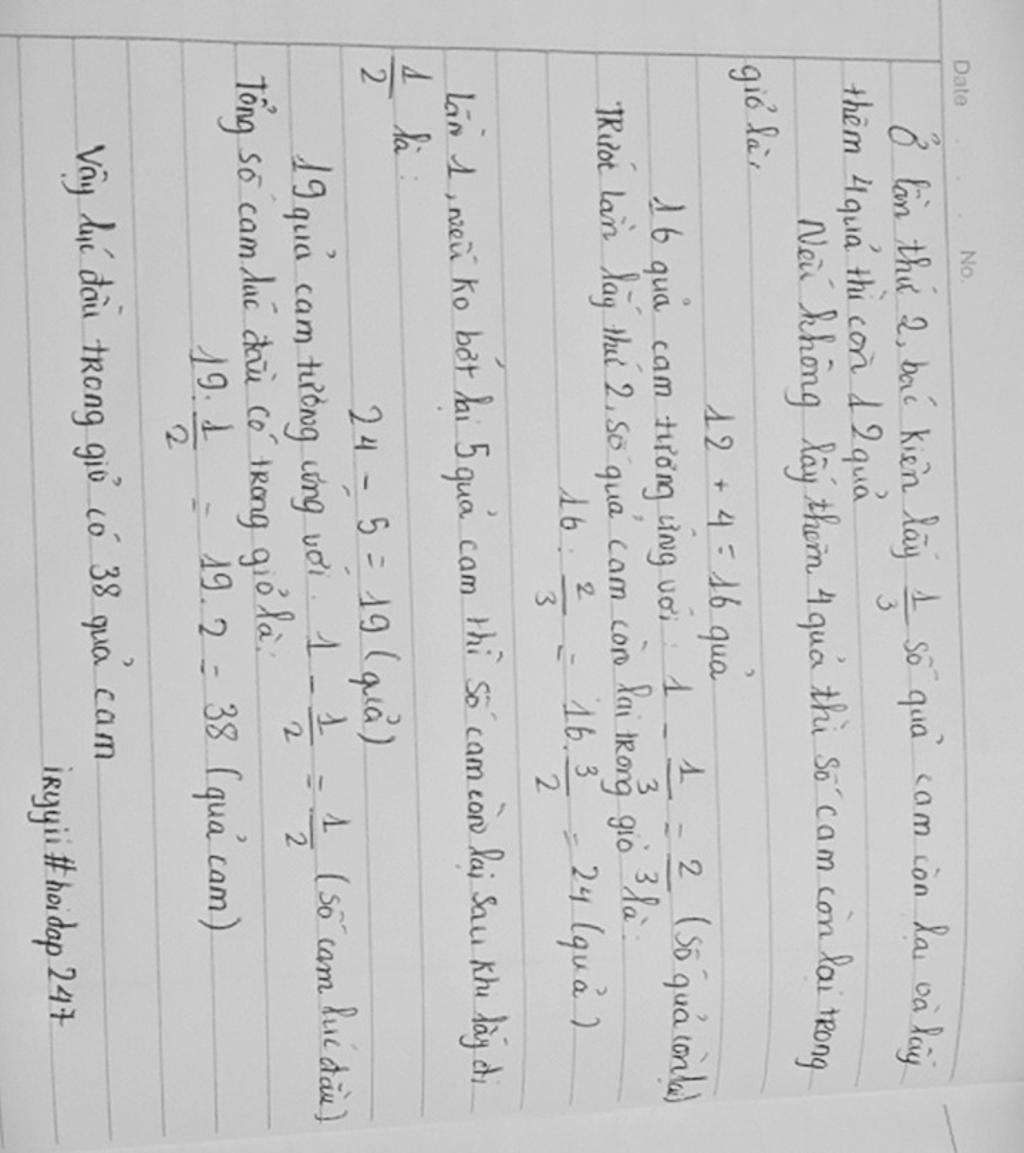 Date . . . No.
Ở lần thứ 2, bác kiên lấy 1/3 số quả cam còn lại và lấy
thêm 4 quả thì còn 12 quả
Nếu không lấy thêm 4 quả thì số cam còn lại trong
giỏ là,
12 + 4 = 16 quả
16 quả cam tương ứng với: 1 - 1/3 = 2/3 (số quả còn lại)
Trước lần lấy thứ 2, số quả cam còn lại trong giỏ là:
16 : 2/3 = 16. 3/2 = 24 (quả)
lần 1, nếu ko bớt lại 5 quả cam thì số cam còn lại sau khi lấy đi
1/2 là:
24 - 5 = 19 (quả)
19 quả cam tương ứng với. 1 - 1/2 = 1/2 (số cam lúc đầu)
Tổng số cam lúc đầu có trong giỏ là:
19. 1/2 = 19. 2 = 38 (quả cam)
Vậy lúc đầu trong giỏ có 38 quả cam
iryyii#hoidap247